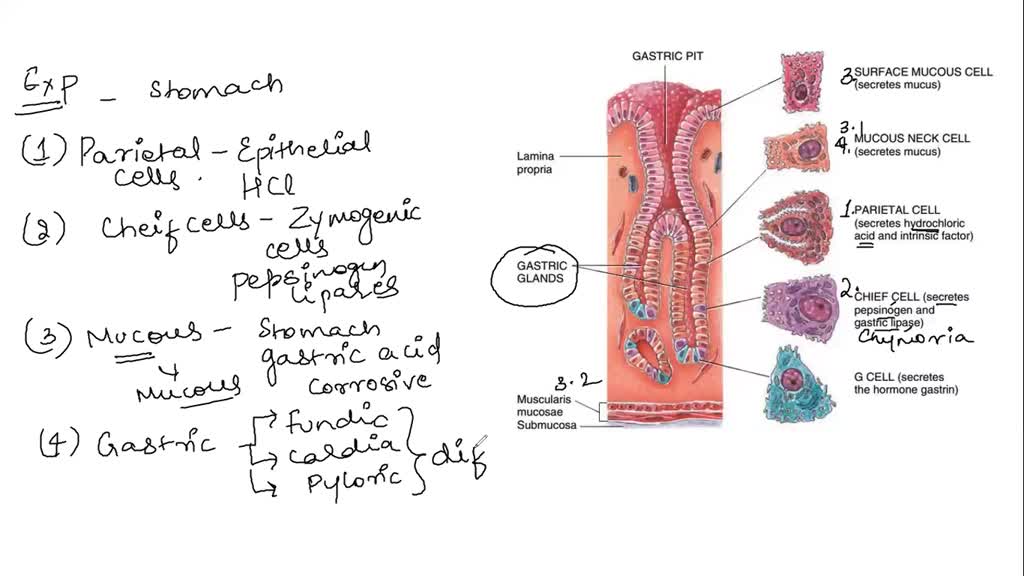 Exp - Stomach
(1) Parietal - Epithelial
cells. HCl
(2) Cheif cells - Zymogenic
cells
pepsinogen
lipases
(3) Mucous - Stomach
gastric acid
Mucous corrosive
(4) Gastric → fundic
→ cardia } dif
→ pyloric
GASTRIC PIT
Lamina
propria
GASTRIC
GLANDS
3.2
Muscularis
mucosae
Submucosa
3. SURFACE MUCOUS CELL
(secretes mucus)
3.1
4. MUCOUS NECK CELL
(secretes mucus)
1. PARIETAL CELL
(secretes hydrochloric
acid and intrinsic factor)
2. CHIEF CELL (secretes
pepsinogen and
gastric lipase)
G CELL (secretes
the hormone gastrin)